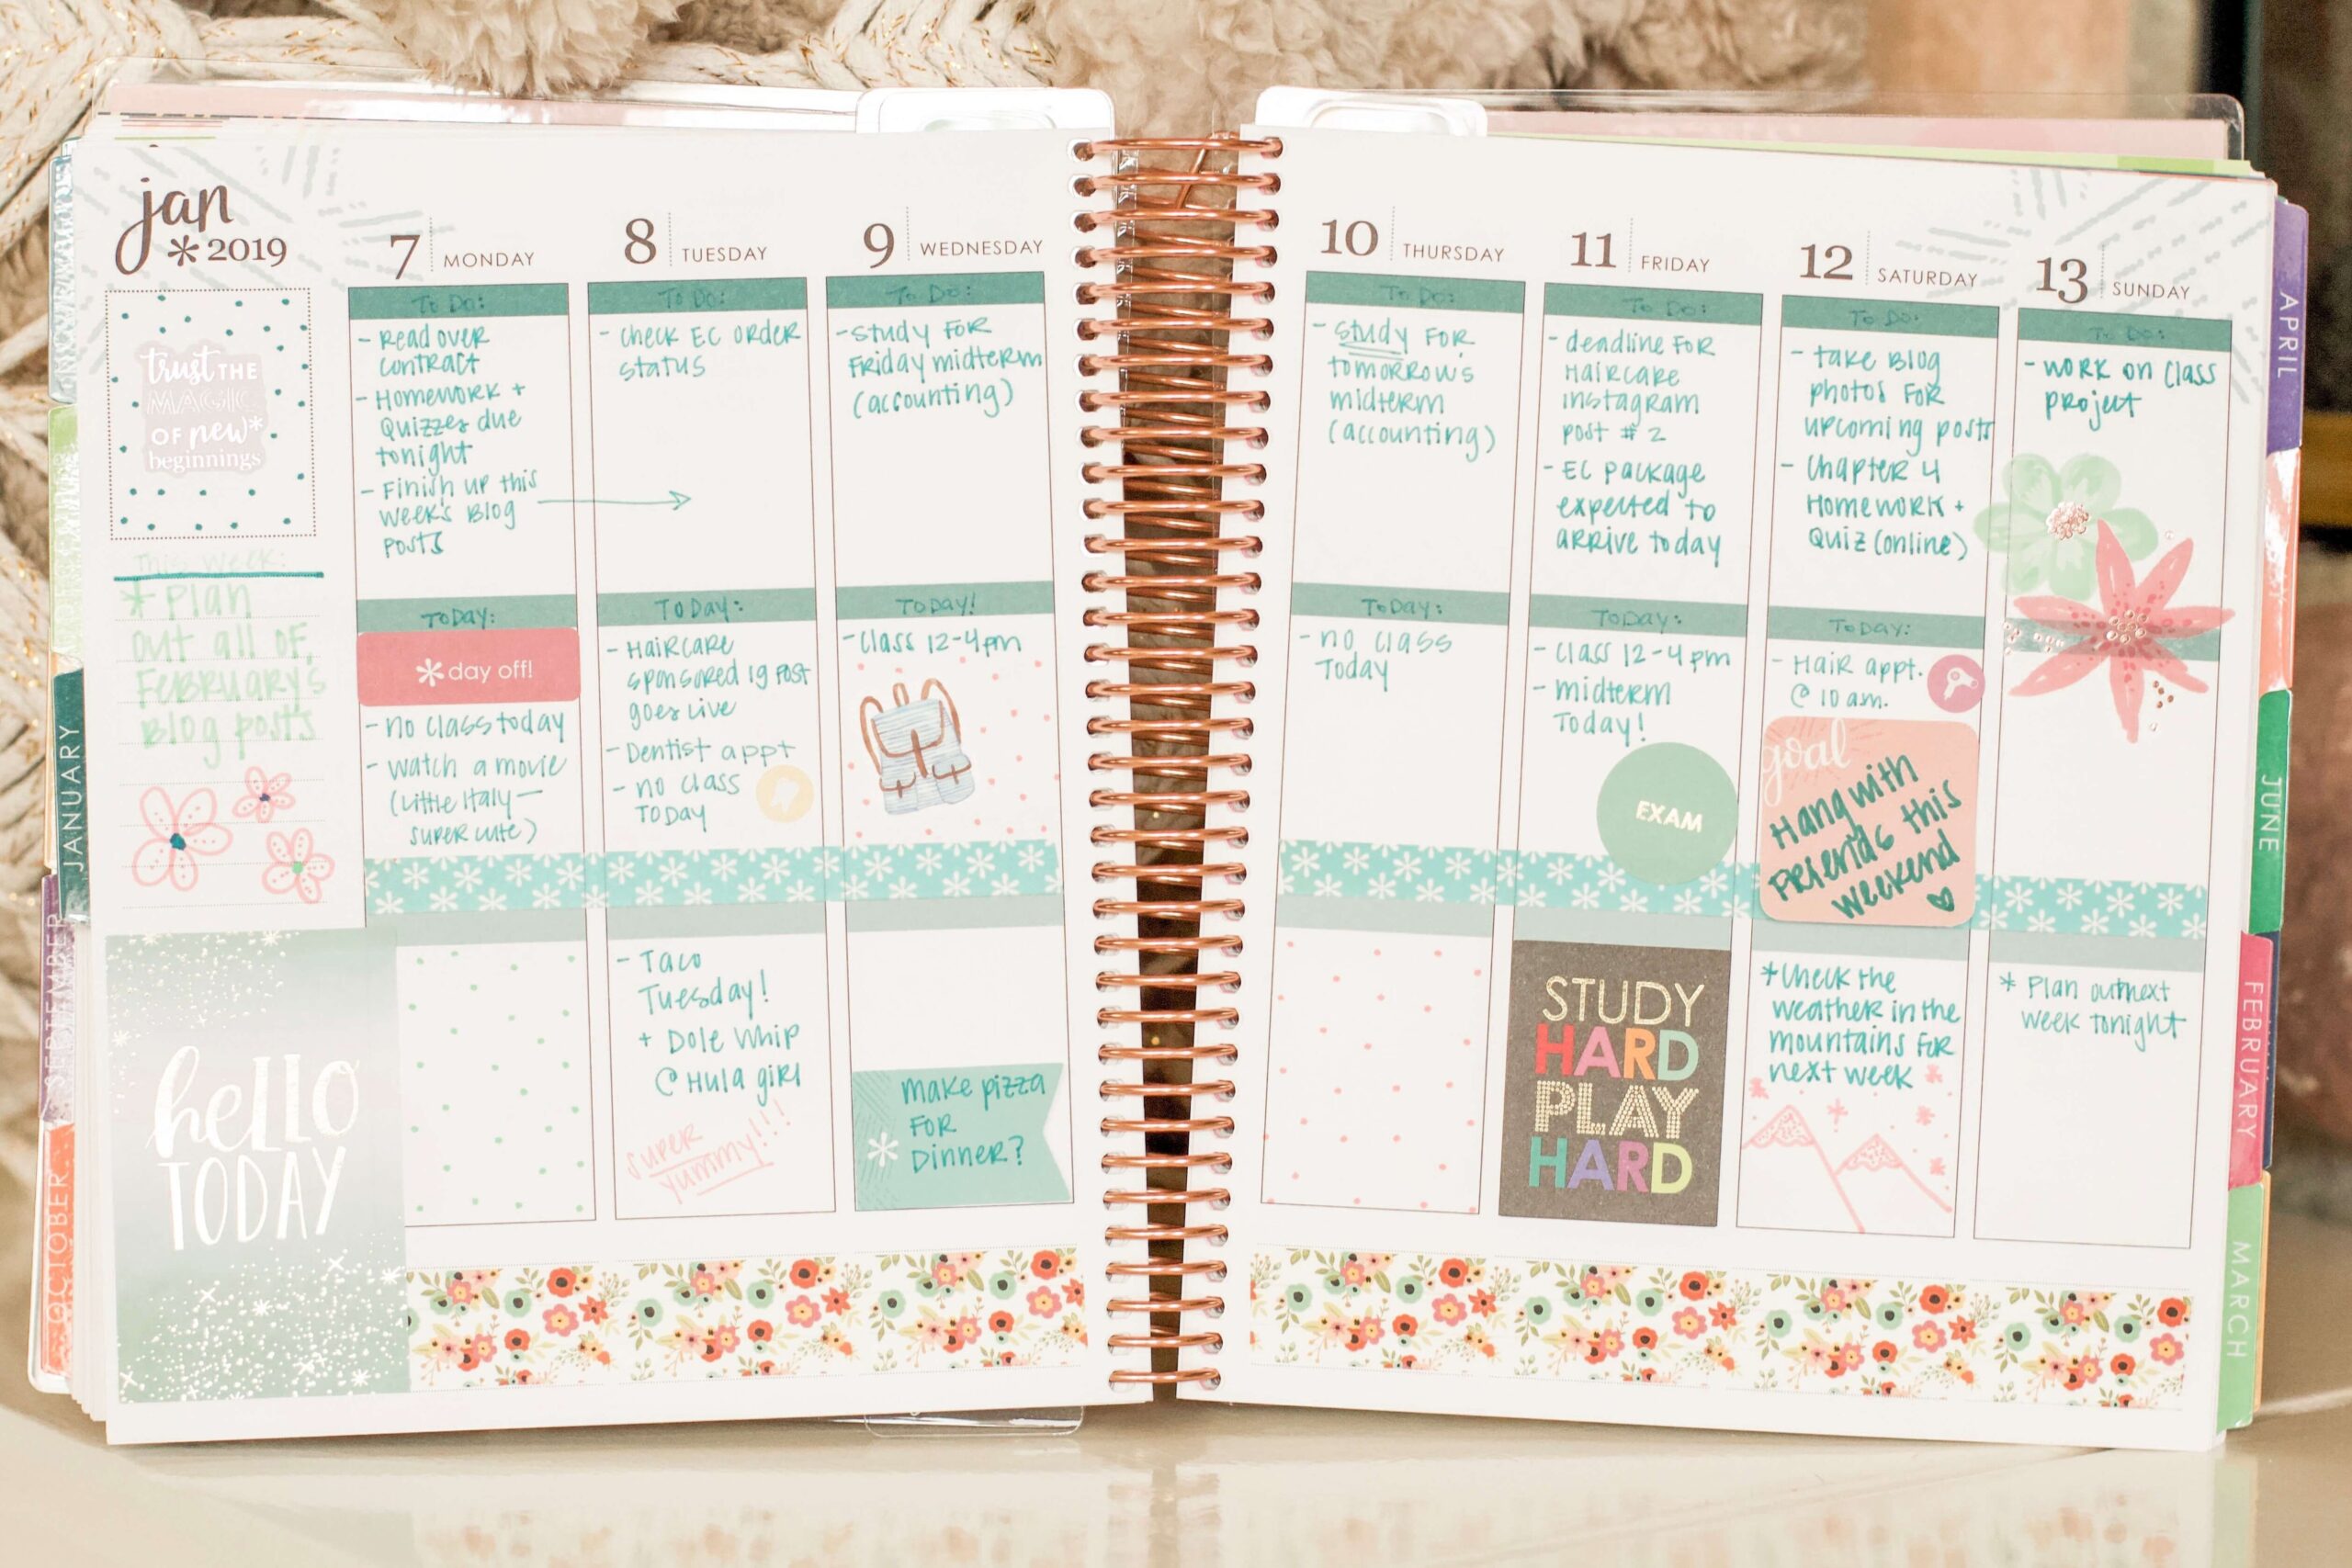 jan
* 2019
trust THE
MAGIC
OF new*
beginnings
This Week:
* Plan
out all of
February's
Blog posts
hello
TODAY
7 MONDAY
To Do:
- Read over
contract
- Homework +
Quizzes due
tonight
- Finish up this
week's Blog
posts
Today:
* day off!
- no class today
- watch a movie
(Little Italy—
super cute)
8 TUESDAY
To Do:
- check EC order
status
Today:
- Haircare
sponsored ig post
goes live
- Dentist appt
- no class
Today
- Taco
Tuesday!
+ Dole Whip
@ Hula girl
super
yummy!!!
9 WEDNESDAY
To Do:
- study for
Friday midterm
(accounting)
Today!
- Class 12-4pm
make pizza
for
* Dinner?
10 THURSDAY
To Do:
- study for
tomorrow's
midterm
(accounting)
Today:
- no class
Today
11 FRIDAY
To Do:
- deadline for
Haircare
instagram
post # 2
- EC package
expected to
arrive today
Today:
- class 12-4 pm
- midterm
Today!
EXAM
STUDY
HARD
PLAY
HARD
12 SATURDAY
To Do:
- take Blog
photos for
upcoming posts
- Chapter 4
Homework +
Quiz (online)
Today:
- Hair appt.
@ 10 am.
goal
Hang with
friends this
weekend
* Check the
weather in the
mountains for
next week
13 SUNDAY
To Do:
- work on class
project
* Plan out next
week tonight
JANUARY
SEPTEMBER
OCTOBER
APRIL
JUNE
FEBRUARY
MARCH